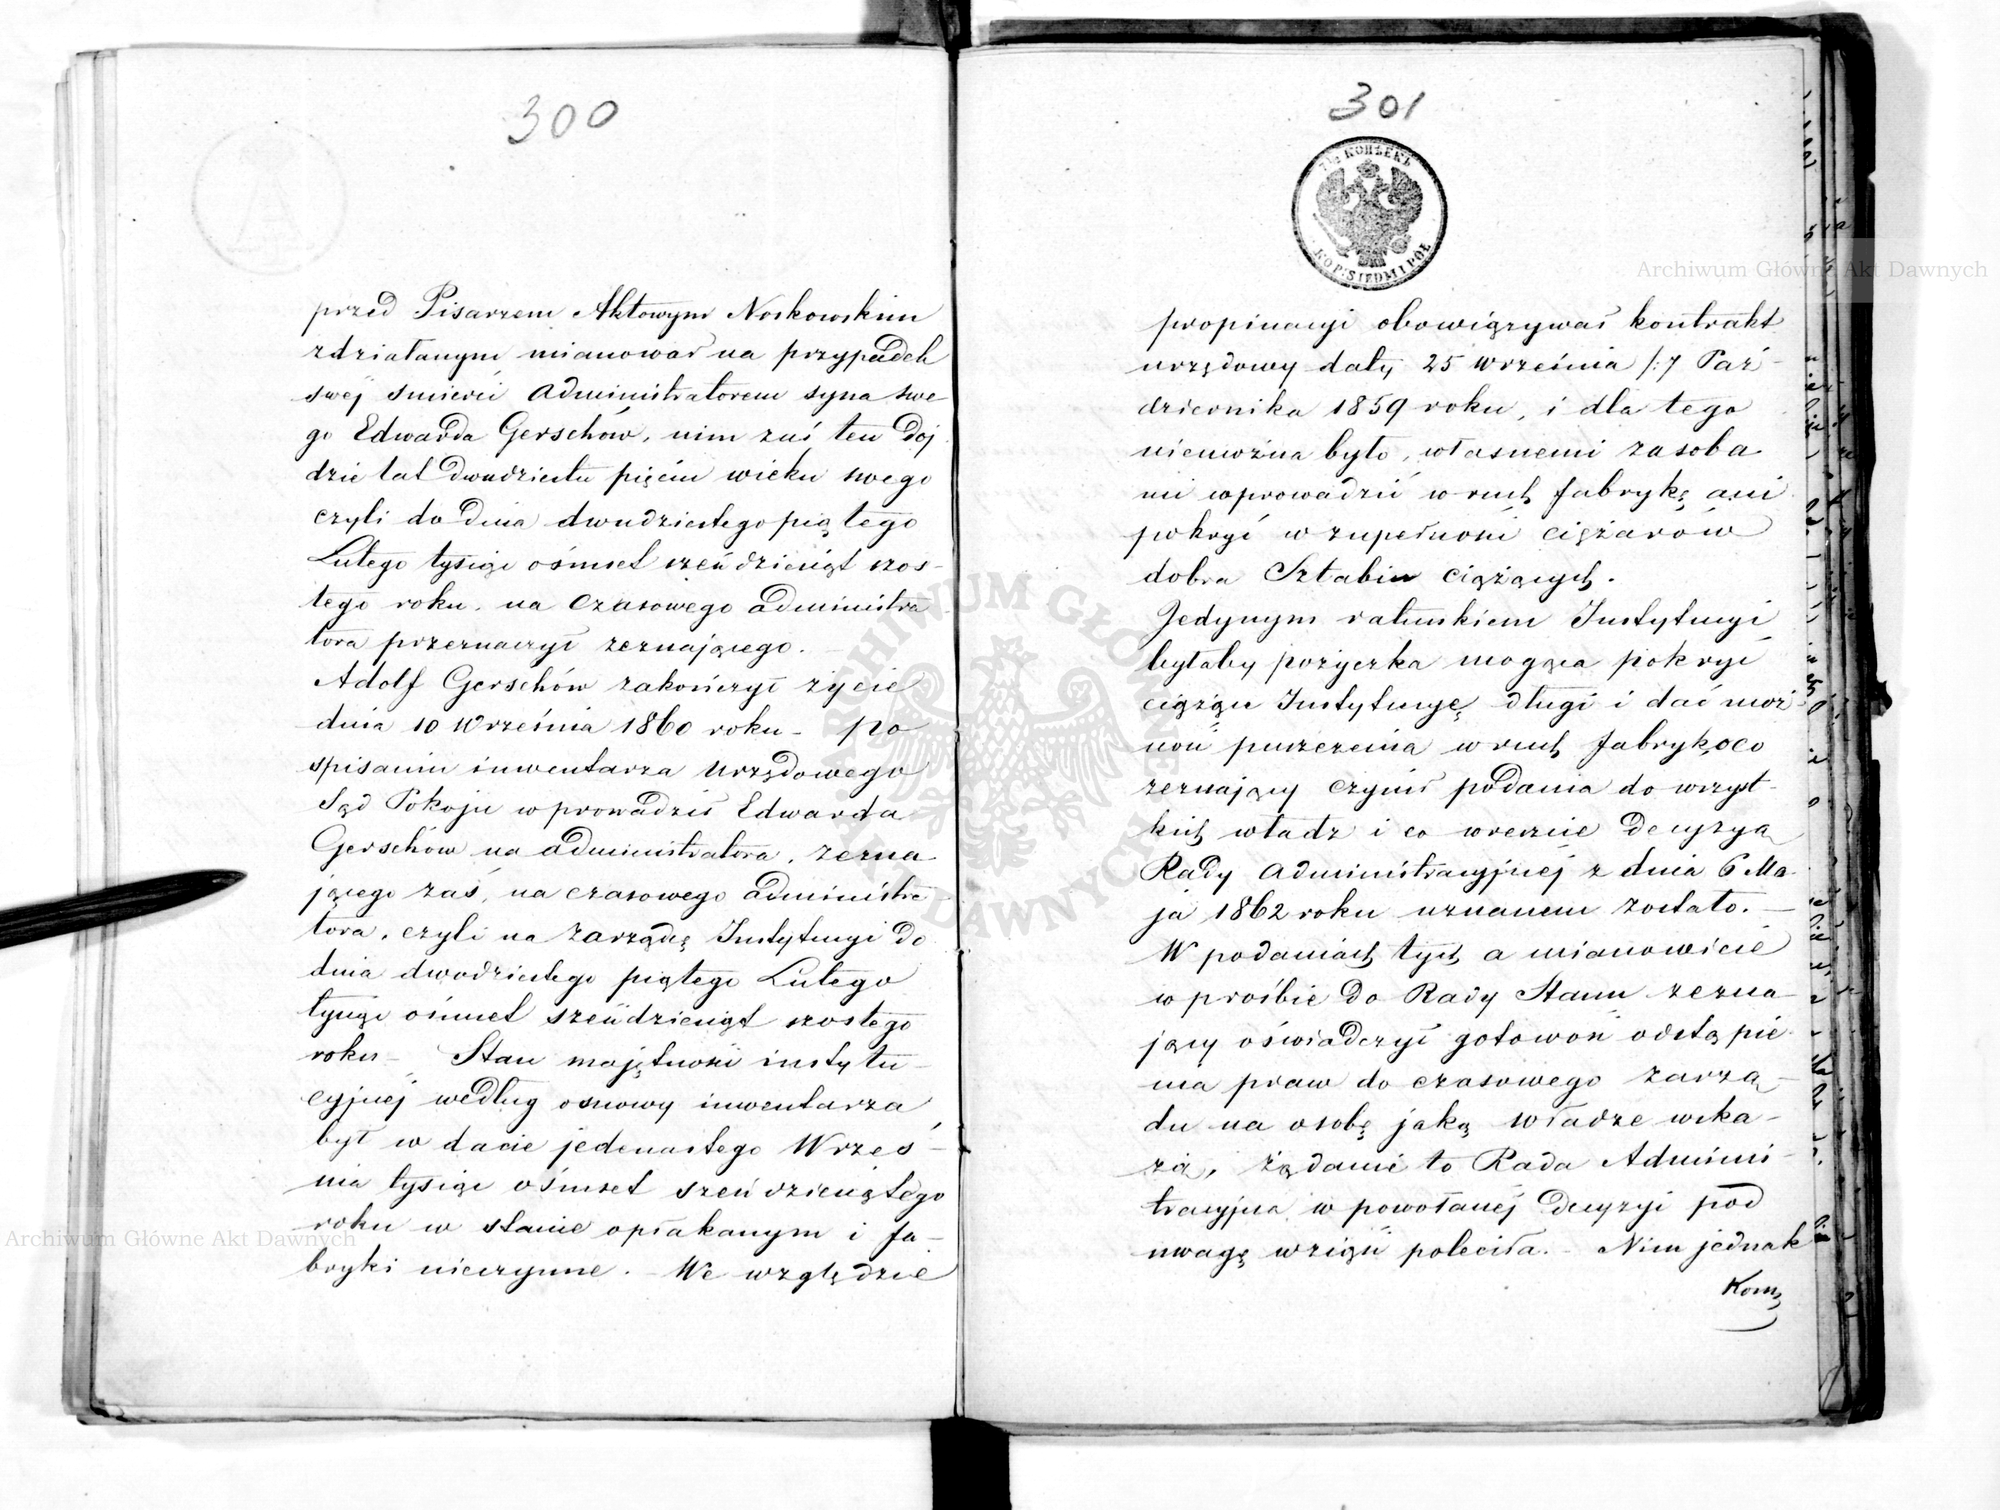 300
przed Pisarzem Aktowym Noskowskim
zdziałanym mianował na przypadek
swéj śmierci administratorem syna swe
go Edwarda Gerschów, nim zaś ten doj
dzie lat dwudziestu pięciu wieku swego
czyli do dnia dwudziestego piątego
Lutego tysiąc ośmset sześćdziesiąt szos-
tego roku, na czasowego administra
tora przeznaczył zeznającego.
Adolf Gerschów zakończył życie
dnia 10 Września 1860 roku - po
spisaniu inwentarza urzędowego
Sąd Pokoju wprowadził Edwarda
Gerschów na administratora, zezna
jącego zaś, na czasowego administra
tora, czyli na zarządcę Instytucyi do
dnia dwódziestego piątego Lutego
tysiąc ośmset sześćdziesiąt szostego
roku - Stan majętności instytu-
cyjnéj według osnowy inwentarza
był w dacie jedenastego Wrześ-
nia tysiąc ośmset sześćdziesiątego
roku w stanie opłakanym i fa-
bryki nieczynne. - We względzie
301
7½ КОПѢЕКЪ
KOP: SIEDM I PÓŁ
propinacyi obowiązywał kontrakt
urzędowy daty 25 Września /:7 Paź-
dziernika 1859 roku, i dla tego
niemożna było, własnemi zasoba
mi wprowadzić w ruch fabrykę ani
pokryć w zupełności ciężarów
dobra Sztabin ciążących.
Jedynym ratunkiem Instytucyi
byłaby pożyczka mogąca pokryć
ciążące Instytucyę długi i dać moż-
ność puszczenia w ruch fabryk, o co
zeznający czynił podania do wszyst-
kich władz i co wreszcie decyzyą
Rady Administracyjnéj z dnia 6 Ma-
ja 1862 roku uznanem zostało. -
W podaniach tych a mianowicie
w prośbie do Rady Stanu zezna-
jący oświadczył gotowość odstąpie-
nia praw do czasowego zarzą-
du na osobę jaką władze wska-
żą, żądanie to Rada Admini-
tracyjna w powołanéj decyzyi pod
uwagę wziąść poleciła. - Nim jednak
Kom
Archiwum Główne Akt Dawnych
Archiwum Główne Akt Dawnych
ARCHIWUM GŁÓWNE AKT DAWNYCH